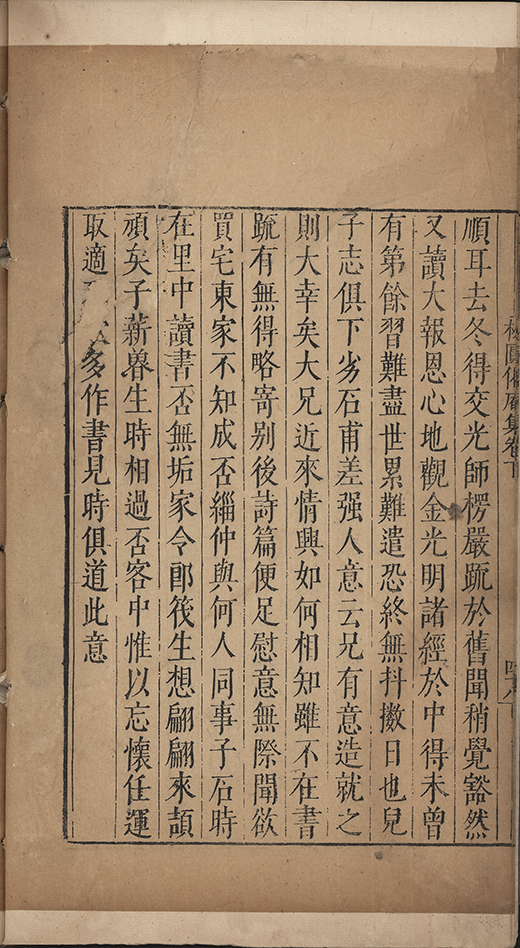 順耳去冬得交光師楞嚴疏於舊聞稍覺豁然
又讀大報恩心地觀金光明諸經於中得未曾
有第餘習難盡世累難遣恐終無抖擻日也兒
子志俱下劣石甫差强人意云兄有意造就之
則大幸矣大兄近來情興如何相知雖不在書
䟽有無得略寄别後詩篇便足慰意無際聞欲
買宅東家不知成否緇仲與何人同事子石時
在里中讀書否無垢家令郎筏生想翩翩來頡
頏矣子薪㫷生時相過否客中惟以忘懷任運
取適多作書見時俱道此意
松圓偈庵集卷下